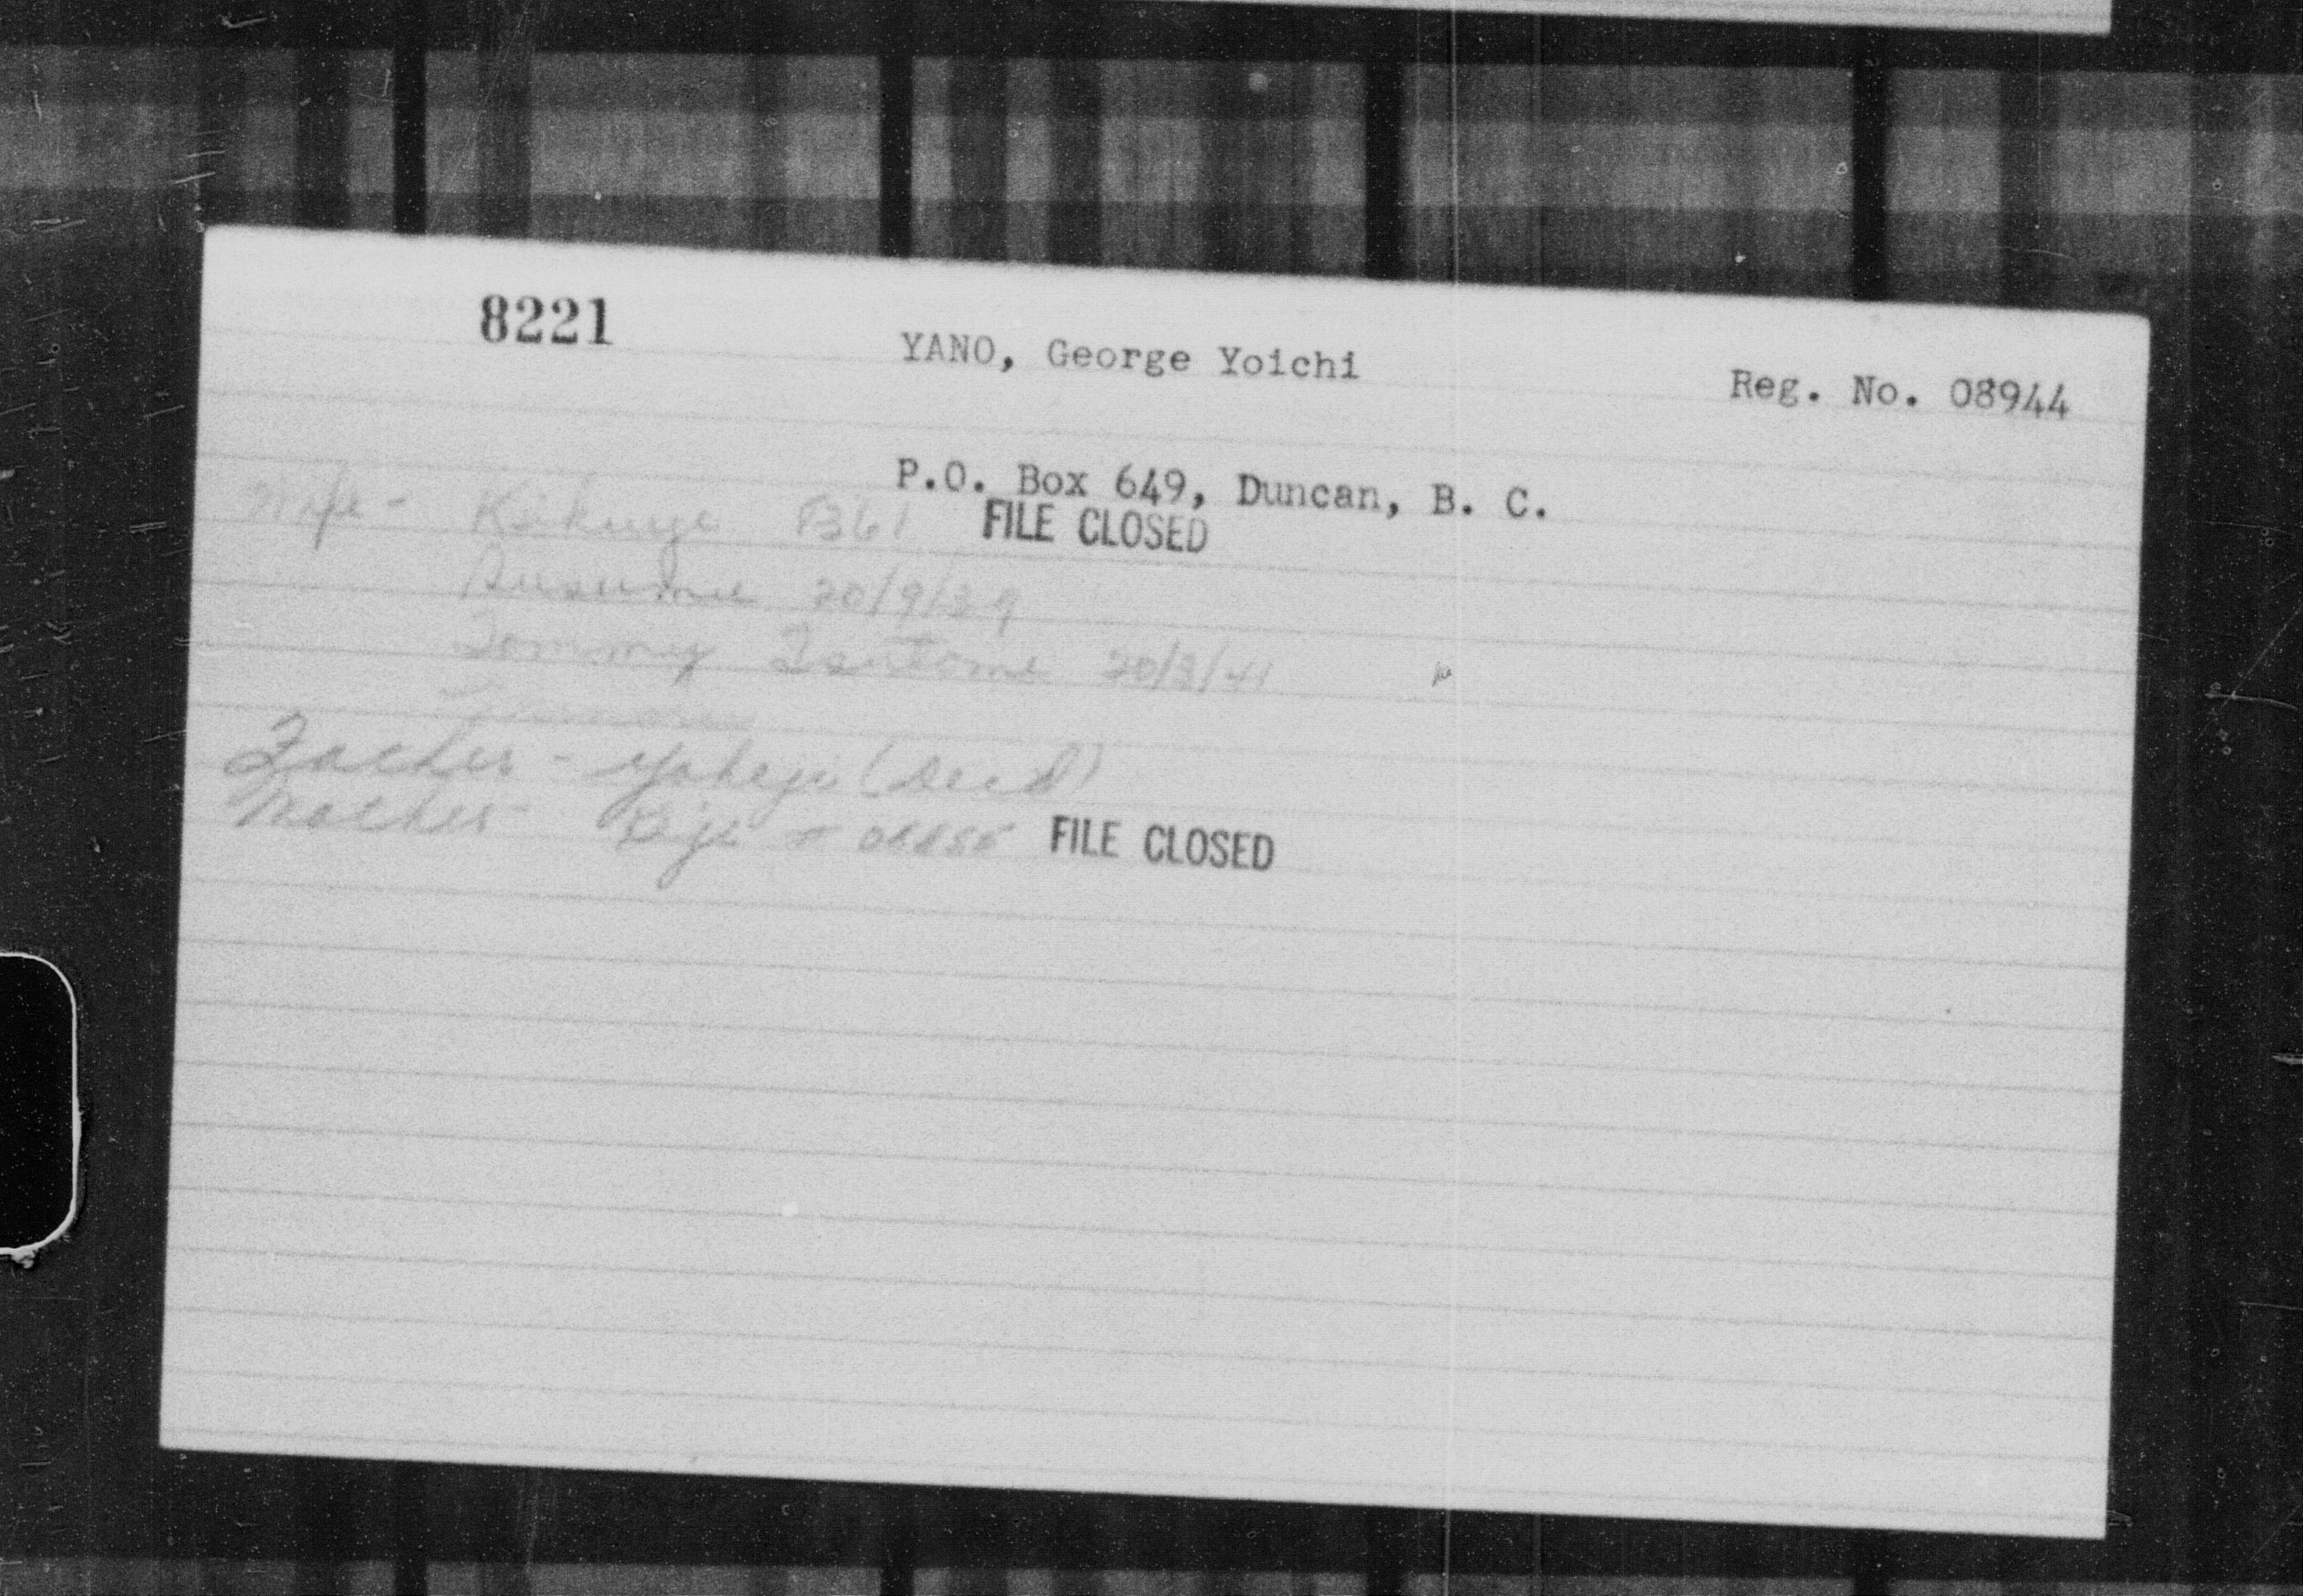 8221
YANO, George Yoichi
Reg. No. 08944
P.O. Box 649, Duncan, B. C.
Wife - Kikuye
FILE CLOSED
20/9/39
Tommy Tsutomu 20/3/41
Father - Yoheji (Dec'd)
Mother -
FILE CLOSED